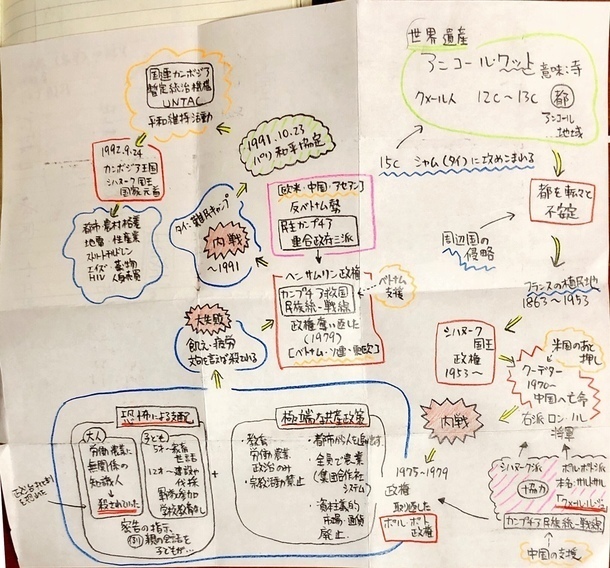 世界遺産
アンコール・ワット 意味:寺
クメール人 12C〜13C 都
アンコール
地域
15C シャム(タイ)に攻めこまれる
都を転々と
不安定
周辺国の
侵略
フランスの植民地
1863〜1953
シハヌーク
国王
政権
1953〜
米国の後押し
クーデター
1970〜
中国へ亡命
右派ロン・ノル
将軍
内戦
シハヌーク派
+協力
ポル・ポト派
本名:サロトサル
「クメール・ルージュ」
カンプチア民族統一戦線
中国の支援
1975〜1979
政権
取り返した
ポル・ポト
政権
極端な共産政策
・教育
労働 農業
政治のみ
・宗教 禁止
・都市から人を追い出す
・全員で農業
(集団合作社
システム)
市場・通貨
廃止
+
恐怖による支配
大人
労働 農業に
無関係の
知識人
↓
殺されていった
子ども
5才〜教育
12才〜建設や
戦闘参加
学校教育なし
密告の指示
例 親の会話を
子どもが…
大失敗
飢え・疲労
文句を言えば殺される
ヘン・サムリン政権
カンプチア救国
民族統一戦線
政権奪い返した
(1979)
[ベトナム・ソ連・東欧]
ベトナム
支援
[欧米・中国・アセアン]
反ベトナム勢
民主カンプチア
連合政府三派
タイに難民キャンプ
内戦
〜1991
1991.10.23
パリ和平協定
国連カンボジア
暫定統治機構
UNTAC
平和維持活動
1992.9.24
カンボジア王国
シハヌーク国王
国家元首
都市・農村格差
地雷
ストリートチルドレン
エイズ 薬物
HIV 人身売買